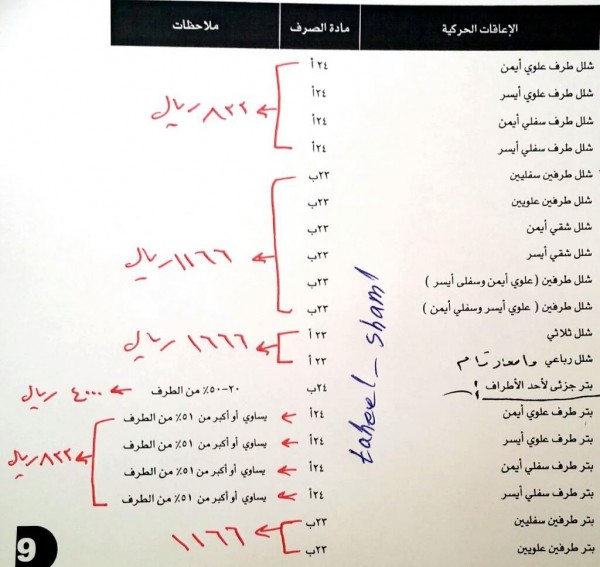 الإعاقات الحركية مادة الصرف ملاحظات
شلل طرف علوي أيمن ٢٤ أ
شلل طرف علوي أيسر ٢٤أ
شلل طرف سفلي أيمن ٢٤أ ← ٨٣٣ ريال
شلل طرف سفلي أيسر ٢٤أ
شلل طرفين سفليين ٢٣ب
شلل طرفين علويين ٢٣ب
شلل شقي أيمن ٢٣ب
شلل شقي أيسر ٢٣ب ← ١١٦٦ ريال
شلل طرفين ( علوي أيمن وسفلى أيسر ) ٢٣ب
شلل طرفين ( علوي أيسر وسفلي أيمن ) ٢٣ب
شلل ثلاثي ٢٣ أ ← ١٦٦٦ ريال
شلل رباعي ٢٣ أ
بتر جزئى لأحد الأطراف ٢٤ب ٢٠-٥٠٪ من الطرف ← ٤٠٠٠ ريال
بتر طرف علوي أيمن ٢٤أ ← يساوي أو أكبر من ٥١٪ من الطرف
بتر طرف علوي أيسر ٢٤أ ← يساوي أو أكبر من ٥١٪ من الطرف ← ٨٣٣ ريال
بتر طرف سفلي أيمن ٢٤أ ← يساوي أو أكبر من ٥١٪ من الطرف
بتر طرف سفلي أيسر ٢٤أ ← يساوي أو أكبر من ٥١٪ من الطرف
بتر طرفين سفليين ٢٣ب ← ١١٦٦
بتر طرفين علويين ٢٣ب
taheel_shaml
9